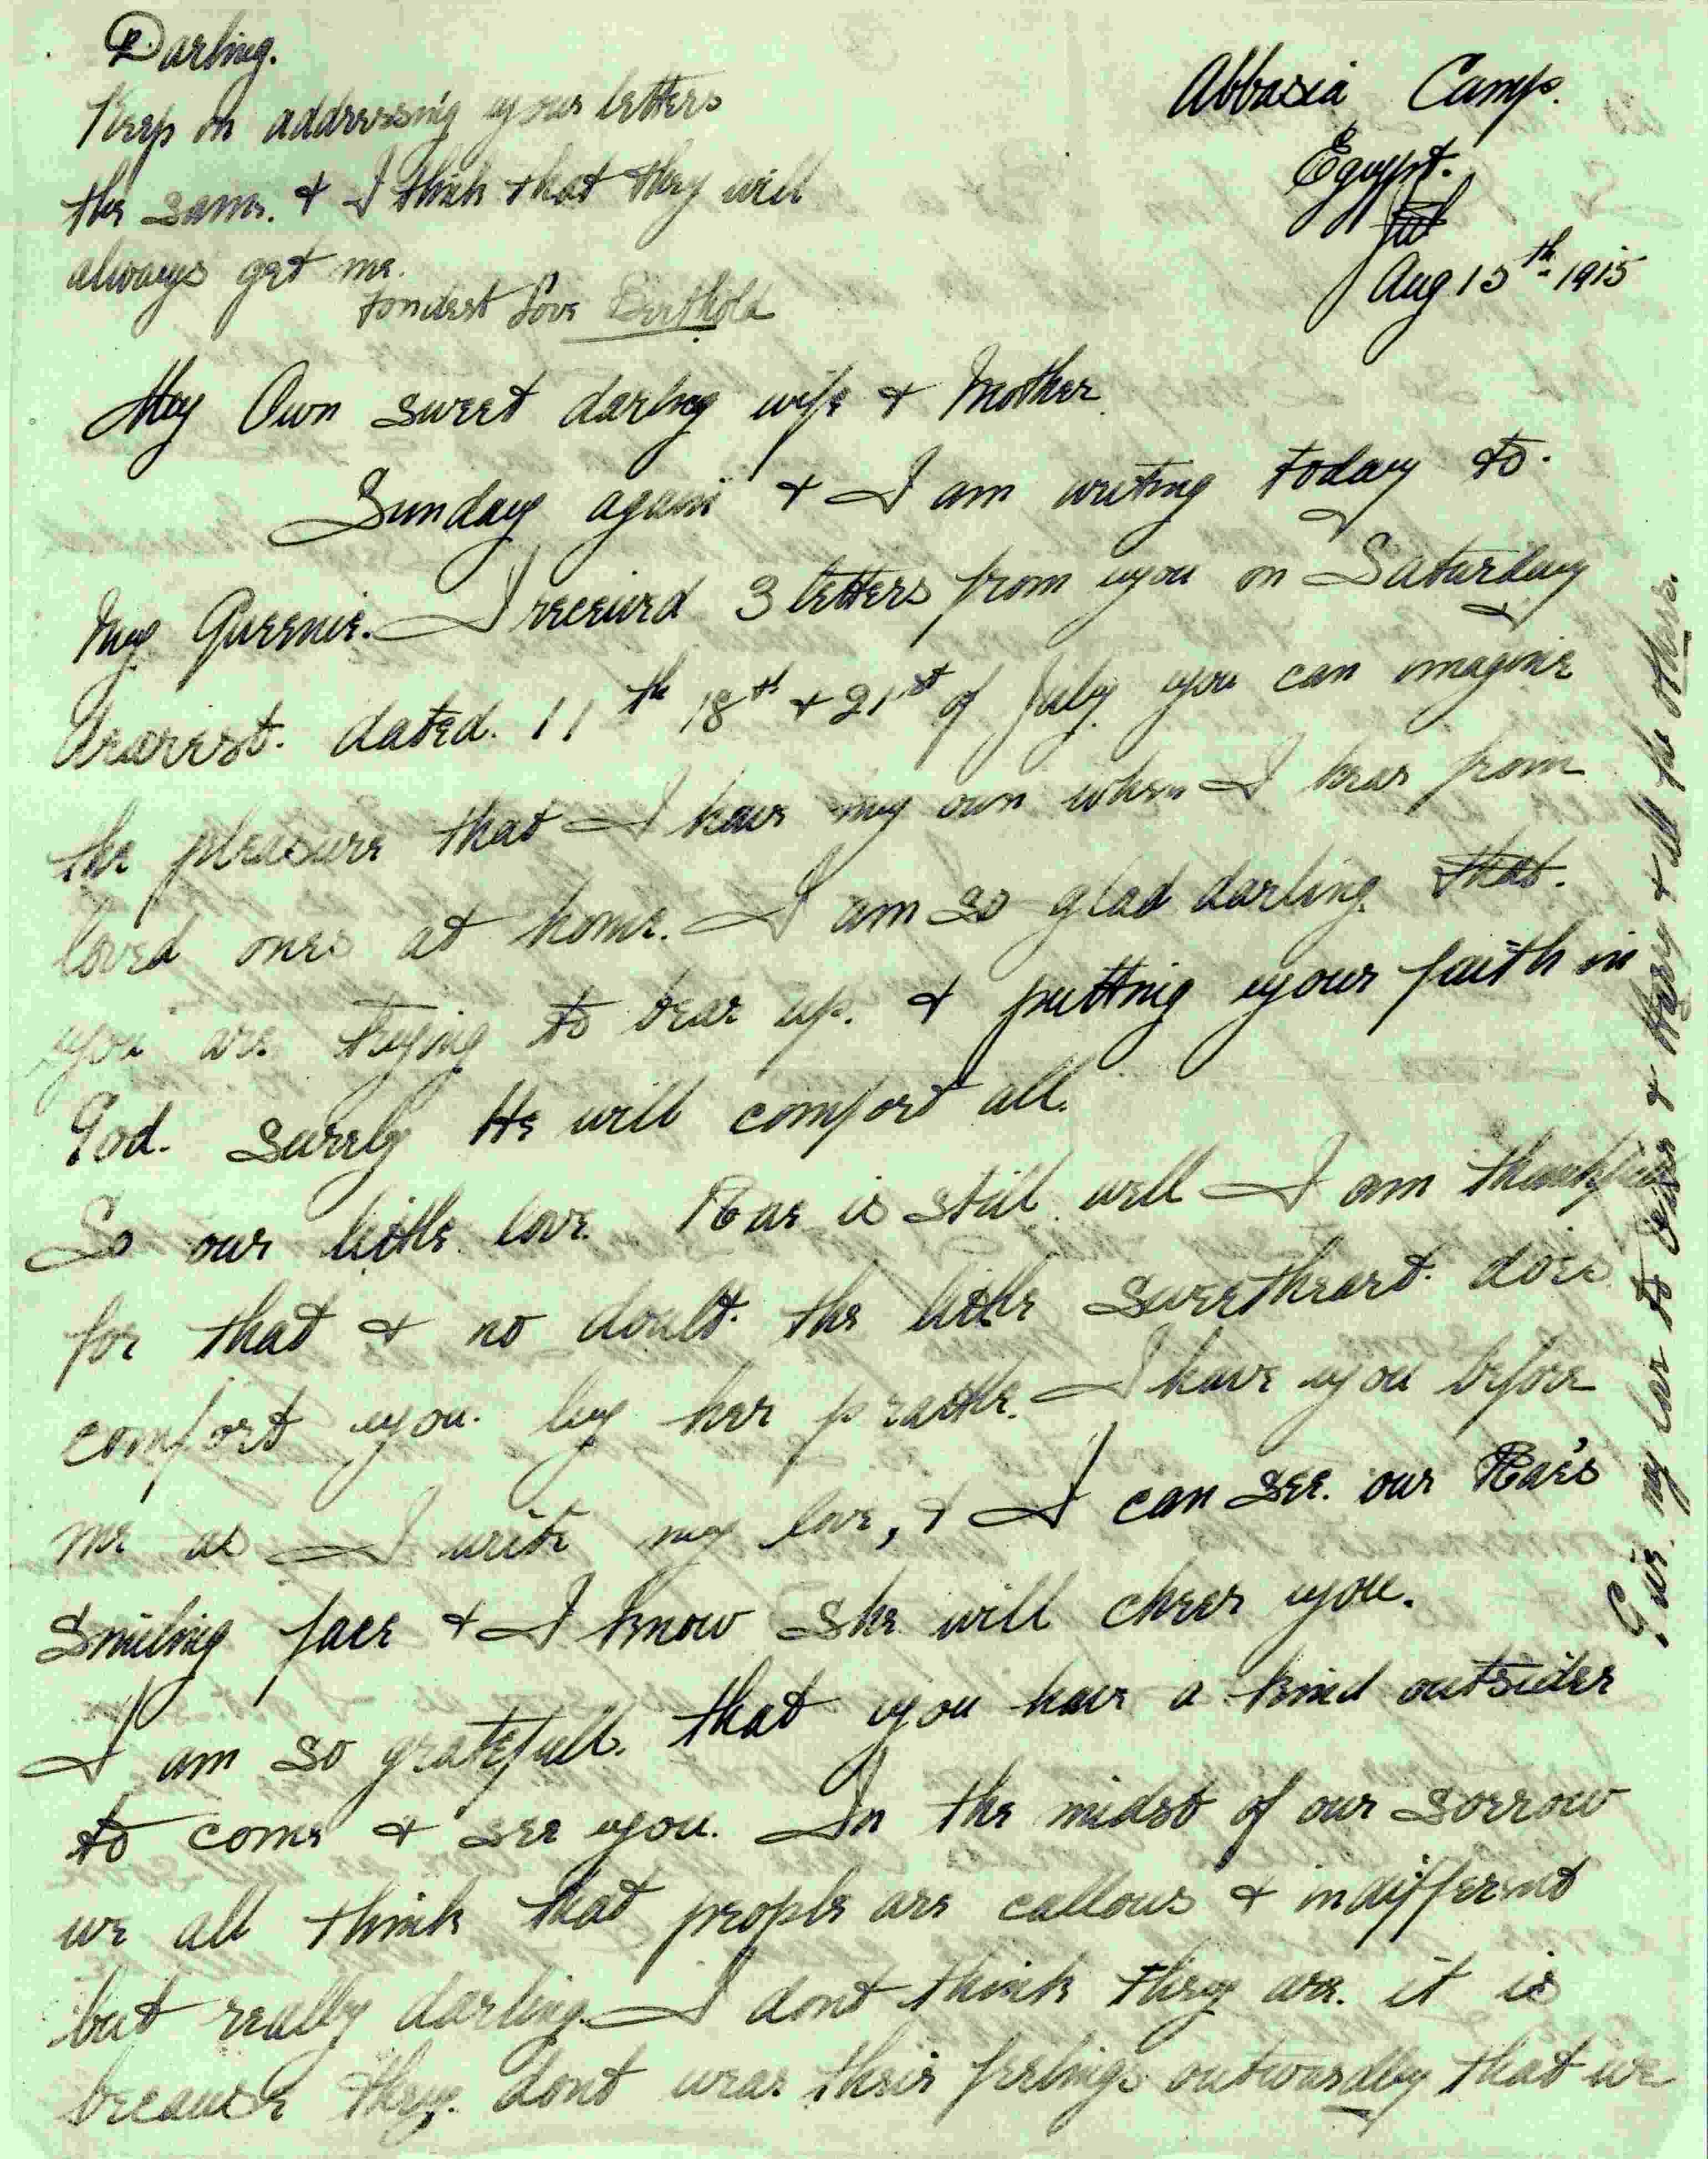 Darling.
Keep on addressing your letters
the same. & I think that they will
always get me.
Fondest Love Berthold
Abbasia Camp.
Egypt.
Aug 15th 1915
My Own sweet darling wife & Mother.
Sunday again & I am writing today to.
my Queenie. I received 3 letters from you on Saturday
dearest. dated. 11th 18th & 21st of July. you can imagine
the pleasure that I have my own when I hear from
loved ones at home. I am so glad darling. that.
you are trying to bear up. & putting your faith in
God. surely He will comfort all.
So our little love. Rae is still well I am thankful
for that & no doubt. the little sweetheart. does
comfort you. by her prattle. I have you before
me as I write my love, & I can see. our Rae's
smiling face & I know she will cheer you.
I am so gratefull. that you have a kind outsider
to come & see you. In the midst of our sorrow
we all think that people are callous & indifferent
but really darling. I dont think they are. it is
because they. dont wear their feelings outwardly that we
Give my love to & Harry & all the others.